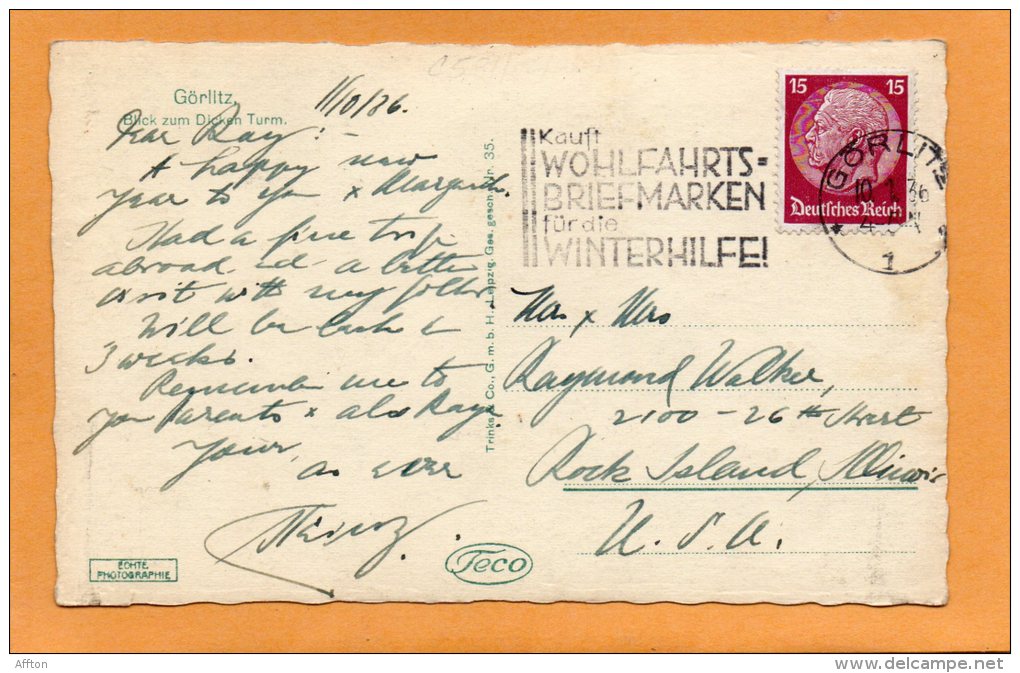 Görlitz,
Blick zum Dicken Turm.
Dear Ray! -
A happy new
year to you x
Had a fine trip
abroad and a better
visit with my folks.
Will be back in
3 weeks.
Remember me to
your parents x also
Yours,
as ever
Trinks & Co., G. m. b. H., Leipzig. Ges. gesch. Nr. 35.
ECHTE
PHOTOGRAPHIE
Teco
Kauft
WOHLFAHRTS=
BRIEFMARKEN
für die
WINTERHILFE!
15 15
Deutsches Reich
GÖRLITZ
10.1.36
1
Mr x Mrs
Raymond Walker,
2100 - 26th Street
Rock Island, Illinois
U. S. A.
Affton
delcampe.net